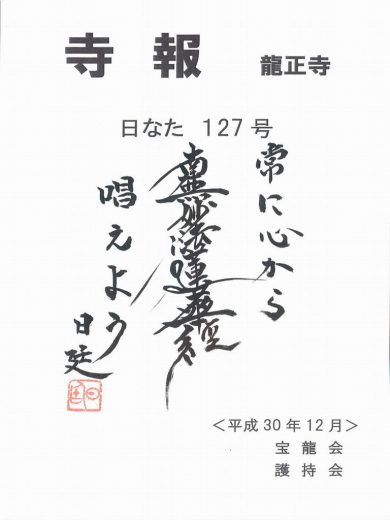 寺報 龍正寺
日なた 127号
常に心から
南無妙法蓮華経
唱えよう
日廷
<平成30年12月>
宝龍会
護持会